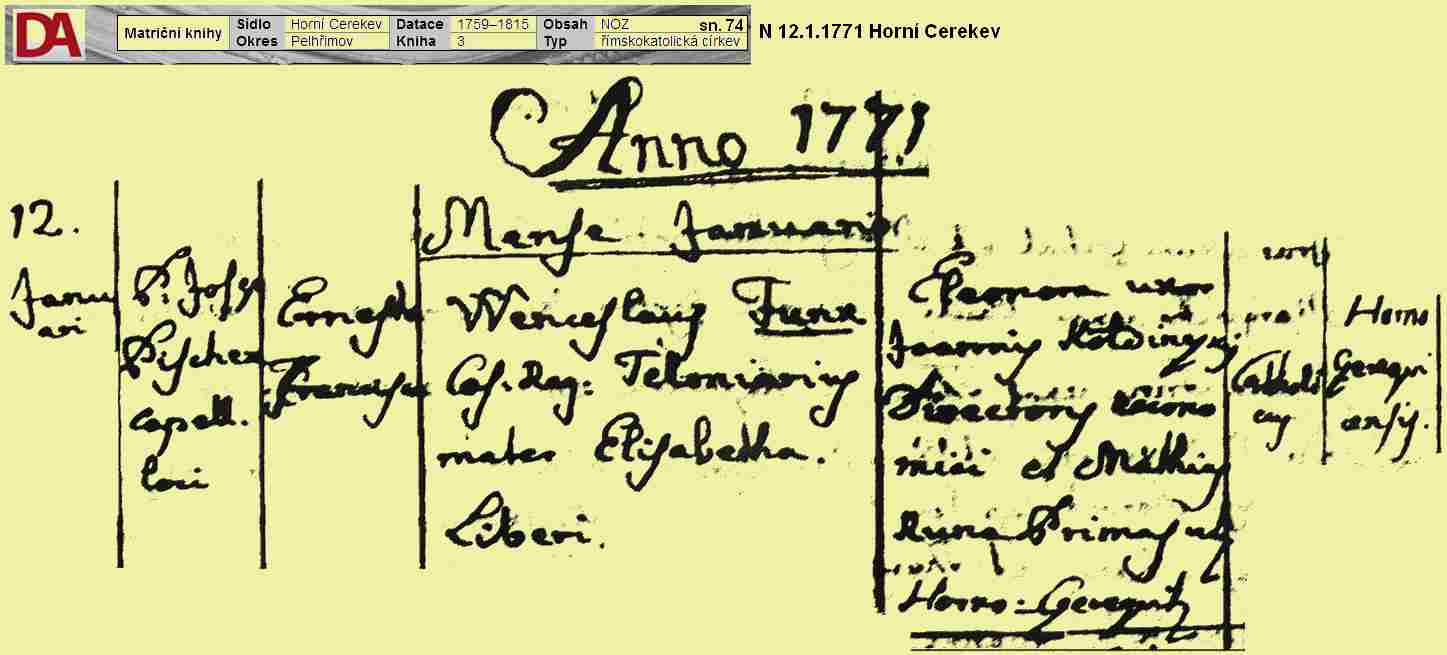 DA
Matriční knihy
Sídlo Horní Cerekev Datace 1759–1815 Obsah NOZ sn. 74
Okres Pelhřimov Kniha 3 Typ římskokatolická církev
N 12.1.1771 Horní Cerekev
Anno 1771
Mense Januario
12.
Janu
ari
P. Josep
Pischer
capell.
loci
Ernesta
Francisca
Wenceslaus Funx
Cas. Reg: Teloniarius
mater Elisabetha.
Liberi.
Eleonora uxor
Joannis
Directoris
mici et Mathias
Primas
Horno-
Catholi
cus
Horno
Cerequi
censis.